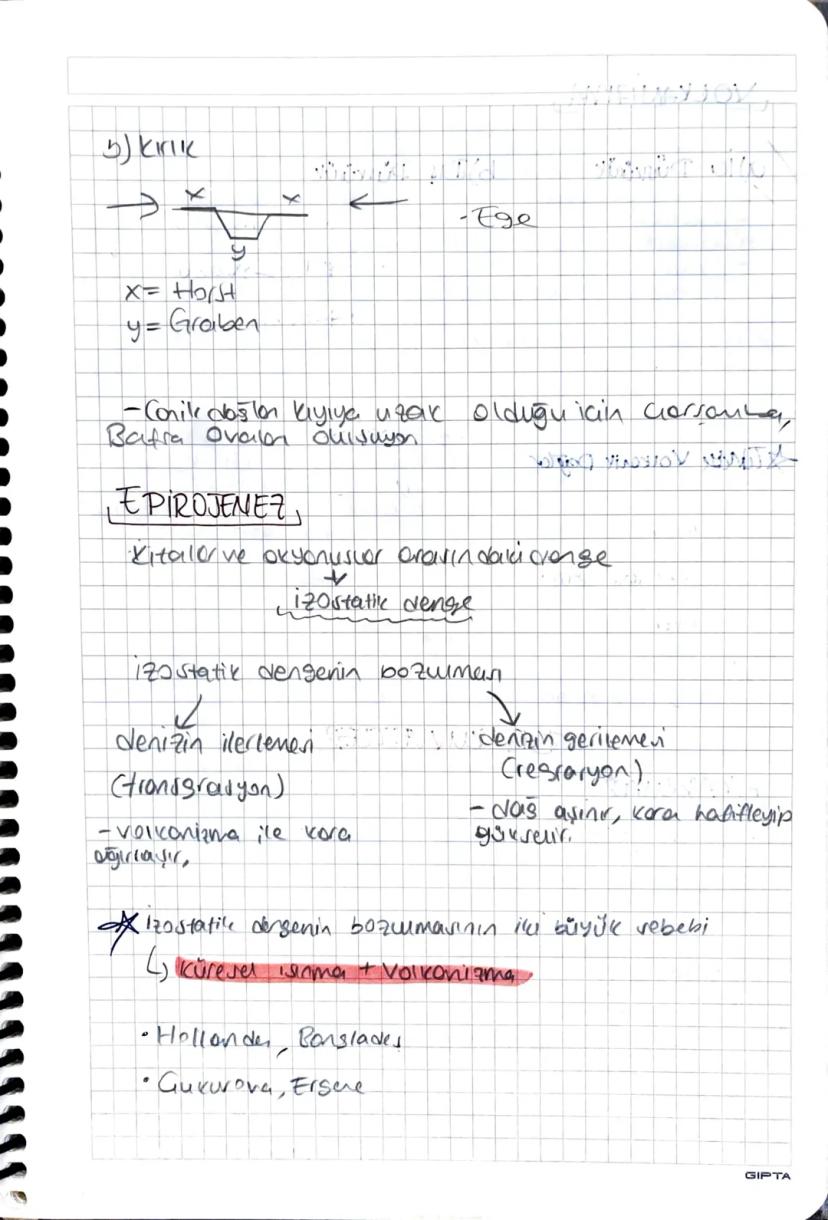 b) Kırık
x x
y
- Ege
x = Horst
y = Graben
- Canik dağları kıyıya uzak olduğu için Çarşamba,
Bafra Ovaları oluşuyor
EPİROJENEZ
Kıtalar ve okyanuslar arasındaki denge
izostatik denge
izostatik dengenin bozulması
denizin ilerlemesi
(transgrasyon)
- volkanizma ile kara
ağırlaşır.
denizin gerilemesi
(regrasyon)
- dağ aşınır, kara hafifleyip
yükselir.
izostatik dengenin bozulmasının iki büyük sebebi
küresel ısınma + Volkanizma
• Hollanda, Bangladeş
• Çukurova, Ergene
GIPTA